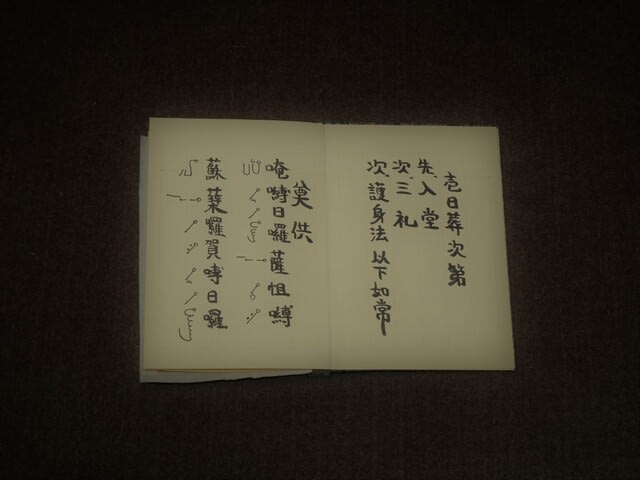 壱日葬次第
先、入堂
次、三礼
次、護身法 以下如常
奠供
唵嚩日囉薩怛嚩
蘇蘗囉賀嚩日囉